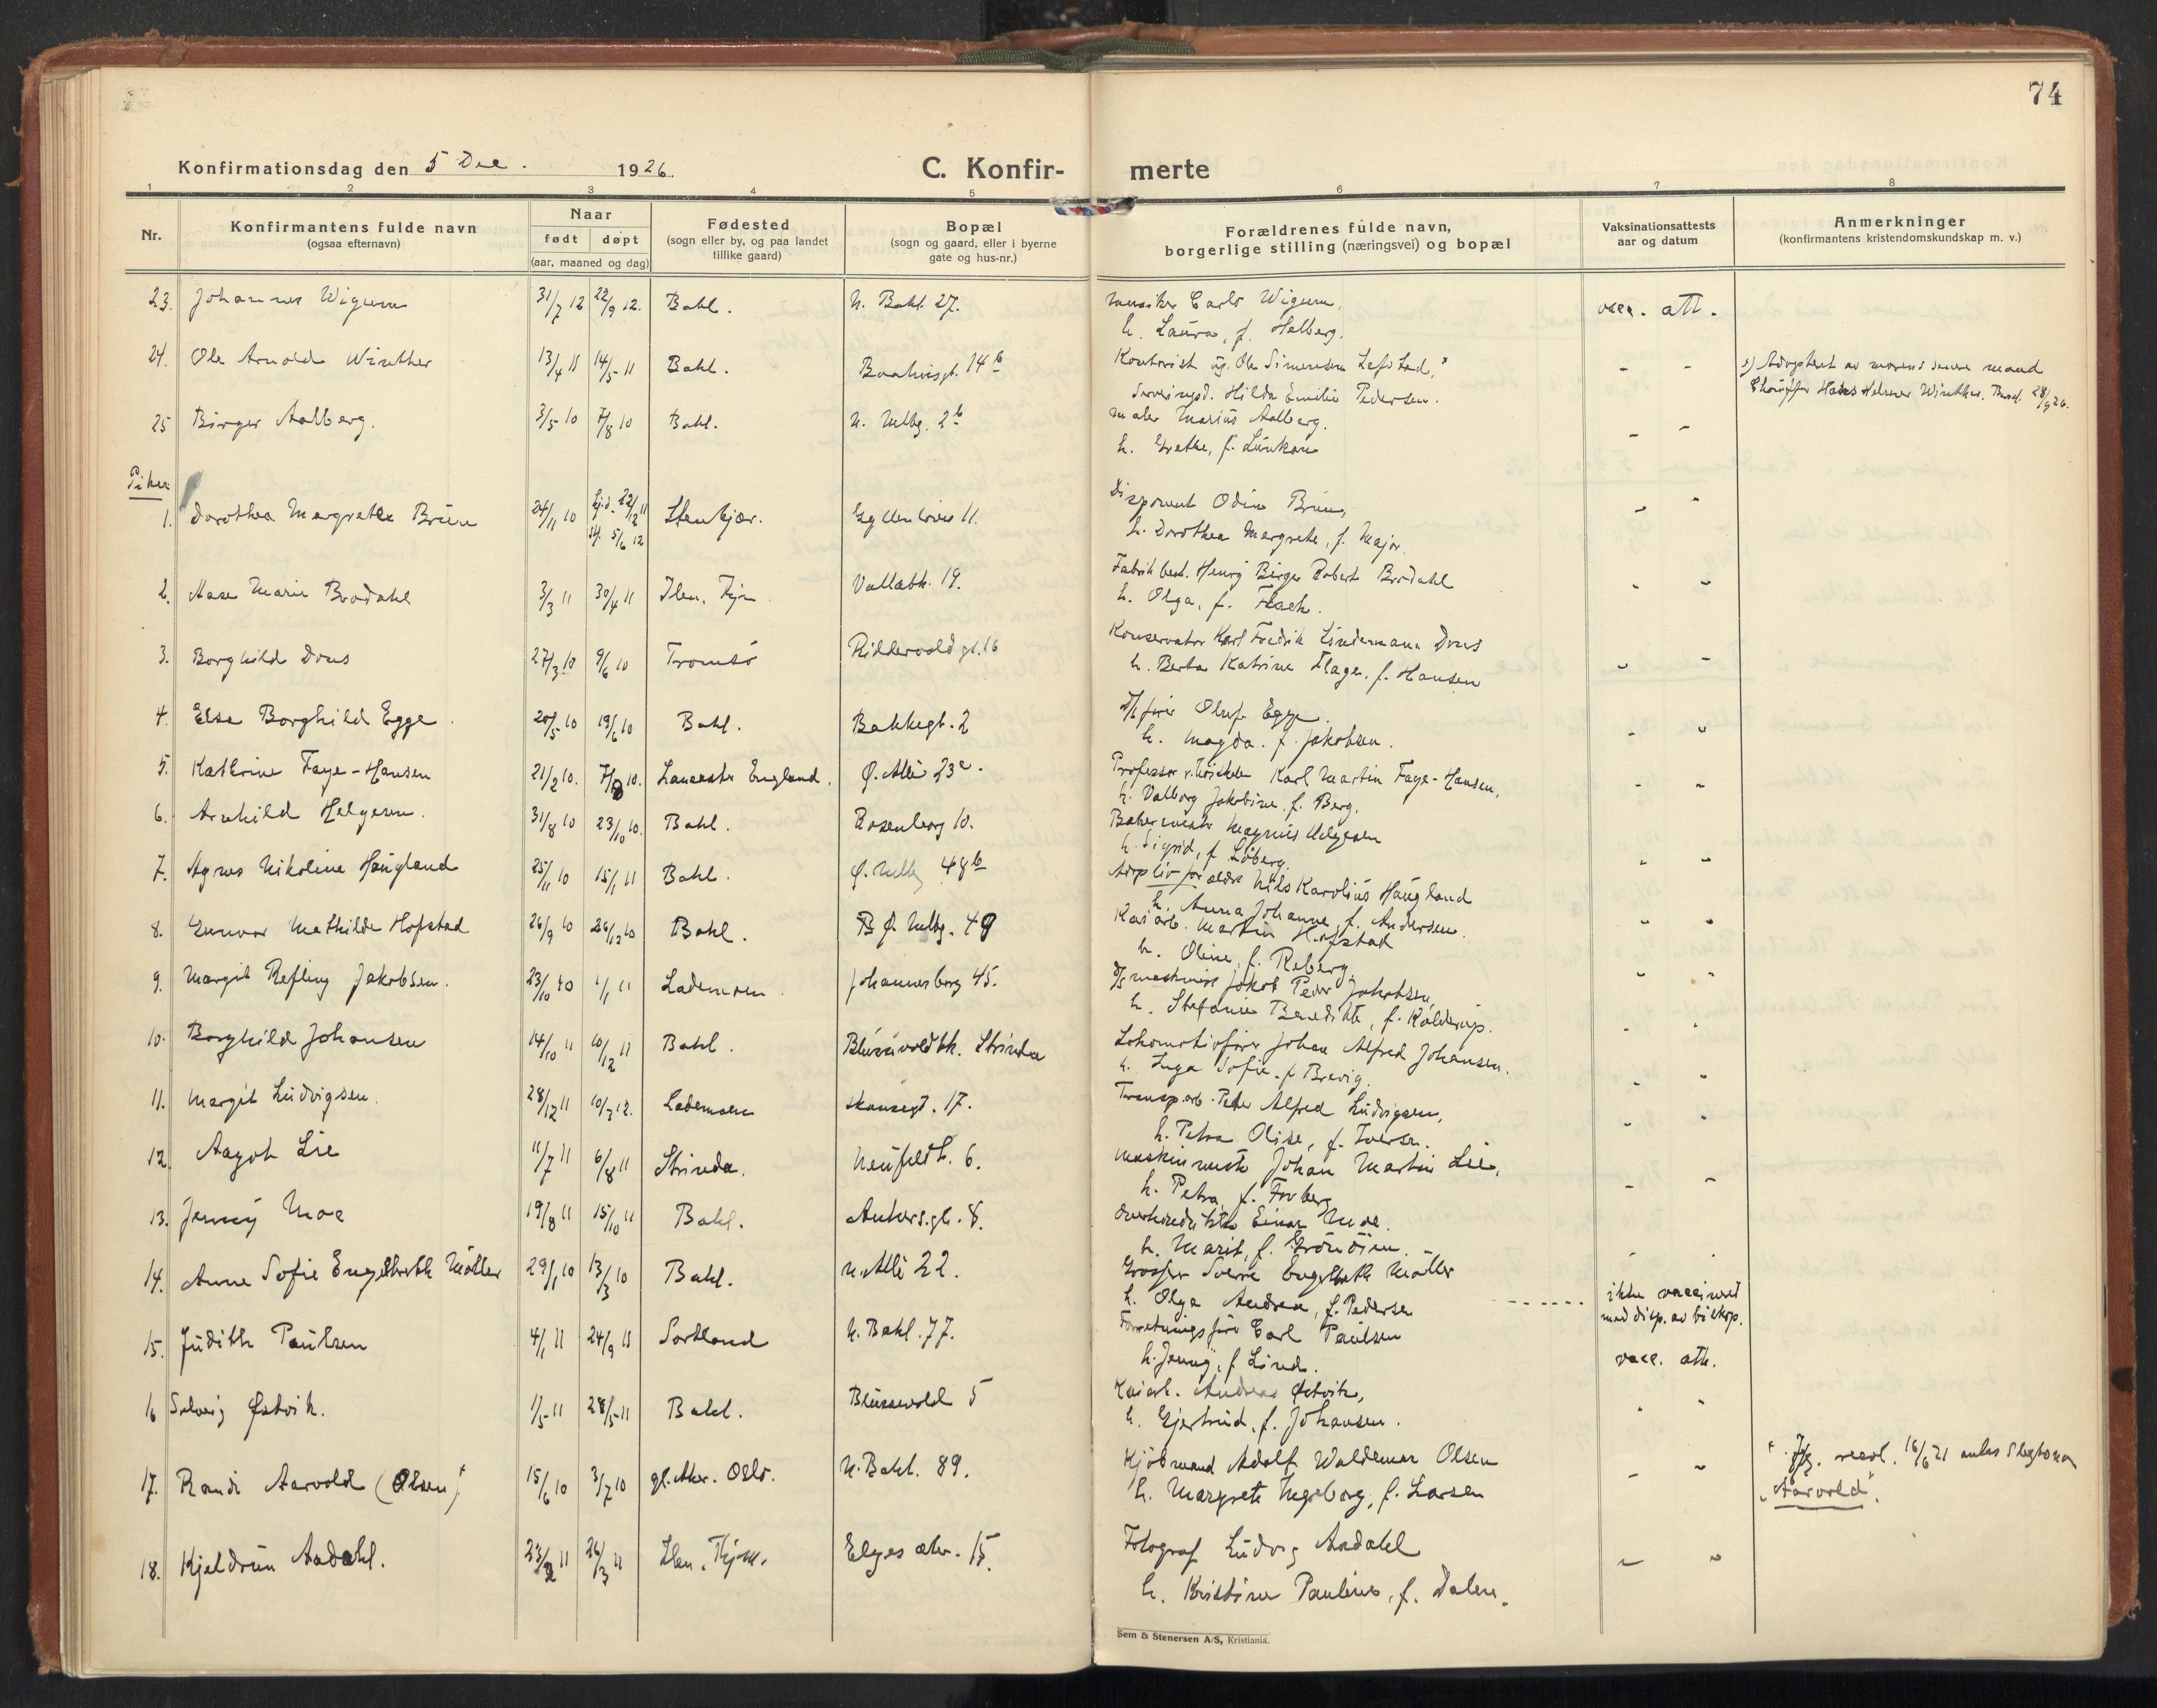 74
Konfirmationsdag den 5 Dec. 1926.
C. Konfir- merte
1 2 3 4 5 6 7 8
Nr.
Konfirmantens fulde navn
(ogsaa efternavn)
Naar
født døpt
(aar, maaned og dag)
Fødested
(sogn eller by, og paa landet
tillike gaard)
Bopæl
(sogn og gaard, eller i byerne
gate og hus-nr.)
Forældrenes fulde navn,
borgerlige stilling (næringsvei) og bopæl
Vaksinationsattests
aar og datum
Anmerkninger
(konfirmantens kristendomskundskap m. v.)
23. Johannes Wigum 31/7 12 22/9 12. Bakl. N. Bakl. 27. Musiker Carlo Wigum, vacc. att.
h. Laura, f. Helberg.
24. Ole Arnold Winther 13/4 11 14/5 11 Bakl. 14 b Kontorist ug. Ole Simonsen - - x) Adoptert av morens senere mand
Hilda Emilie Pedersen. Chauffør Hans Helmer Winther. 28/9 26.
25 Birger Aalberg. 3/5 10 7/8 10 Bakl. N. Mlbg. 2 b Maler Marius Aalberg. - -
h. Grethe, f.
Piker
1. Dorothea Margrethe Bruun 24/11 10 hj.d. 22/12 11 Stenkjær. Gyldenløves 11. Disponent Odin Bruun, - -
5/6 12 h. Dorothea Margrete, f. Major.
2. Aase Marie Brodahl 3/3 11 30/4 11 Ilen, Tjm Vollabk. 19. Fabrikbest. Henry Birger Robert Brodahl - -
h. Olga, f.
3. Borghild Dons 27/3 10 9/6 10 Tromsø Riddervoldgt. 16 Konservator Karl Fredrik Lindemann Dons - -
h. Berta Katrine Flage, f. Hansen
4. Else Borghild Egge. 20/5 10 19/6 10 Bakl. Bakkegt. 2 Oluf Egge. - -
h. Magda. f. Jakobsen.
5. Kathrine Faye-Hansen 21/2 10. 7/8 10. Lancaster England. Ø. Allé 23 a. Professor v. høiskolen Karl Martin Faye-Hansen, - -
h. Valborg Jakobine, f. Berg.
6. Arnhild Helgesen. 31/8 10 23/10 10. Bakl. Rosenborg 10. Bakermester Magnus Helgesen - -
h. Sigrid, f. Löberg.
7. Agnes Nikoline Haugland 25/11 10 15/1 11 Bakl. Ø. Mlbg 48 b Adoptivforældre Nils Karolius Haugland - -
h. Anna Johanne, f. Andersen.
8. Gunvor Mathilde Hofstad 26/9 10 26/12 10 Bakl. Ø. Mlbg. 49 Kaiarb. Martin Hofstad - -
h. Oline, f. Reberg.
9. Margit Refling Jakobsen. 23/10 10 1/1 11 Lademoen. Johannesborg 45. D/S maskinist Jakob Peder Jakobsen, - -
h. Stefanie Benedikte, f. Kolderup.
10. Borghild Johansen 14/10 11 10/12 11 Bakl. Blussuvoldbk. Strinda Lokomotivfører Johan Alfred Johansen. - -
h. Inga Sofie. f. Brevig.
11. Margit Ludvigsen. 28/12 11 10/3 12. Lademoen 17. Transp.arb. Peter Alfred Ludvigsen, - -
h. Petra Olise, f. Iversen.
12 Aagot Lie 11/7 11 6/8 11 Strinda. Neufeldt. 6. Maskinmester Johan Martin Lie, - -
h. Petra, f. Forberg
13. Jenny Moe 19/8 11 15/10 11 Bakl. Ankersgt. 8. Einar Moe. - -
h. Marit, f.
14. Anne Sofie Engelbreth Möller 29/1 10 13/3 10 Bakl. N. Allé 22. Grosser Sverre Engelbreth Möller - -
h. Olga Andrea, f. Pedersen ------ ikke vaccineret
15. Judith Paulsen 4/1 11 24/9 11 Sortland N. Bakl. 77. Forretningsfører Carl Paulsen med disp. av biskop.
h. Jenny, f. Lind. vacc. att.
16 Solveig Østvik. 1/5 11 28/5 11 Bakl. Blussuvold 5 Kaiarb. Andreas Østvik, - -
h. Gjertrud, f. Johansen.
17. Randi Aarvold (Olsen) x 15/6 10 3/7 10 gl. Aker. Oslo. N. Bakl. 89. Kjöbmand Adolf Waldemar Olsen - - x. Jfg. resol. 16/6 21 antas slegtsnavn
h. Margrete Ingeborg, f. Larsen "Aarvold".
18. Kjeldrun Aadahl. 23/2 11 26/3 11 Ilen, Tjm. 15. Fotograf Ludvig Aadahl - -
h. Kristine Pauline, f. Dalen.
Sem & Stenersen A/S, Kristiania.